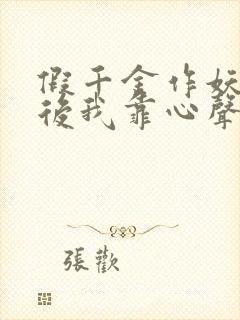 假千金作妖
後我靠心聲
張歡